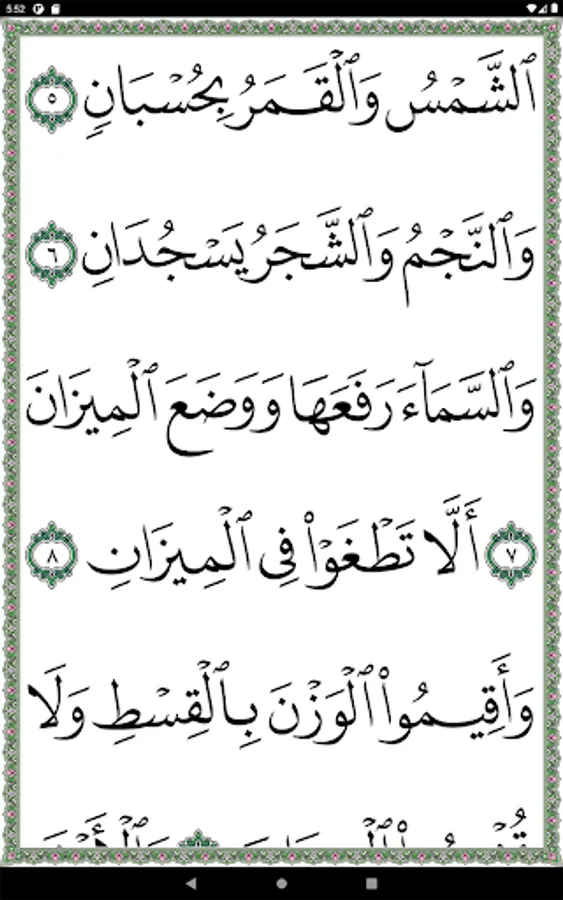 5:52
ٱلشَّمۡسُ وَٱلۡقَمَرُ بِحُسۡبَانٖ ٥
وَٱلنَّجۡمُ وَٱلشَّجَرُ يَسۡجُدَانِ ٦
وَٱلسَّمَآءَ رَفَعَهَا وَوَضَعَ ٱلۡمِيزَانَ
٧ أَلَّا تَطۡغَوۡاْ فِي ٱلۡمِيزَانِ ٨
وَأَقِيمُواْ ٱلۡوَزۡنَ بِٱلۡقِسۡطِ وَلَا